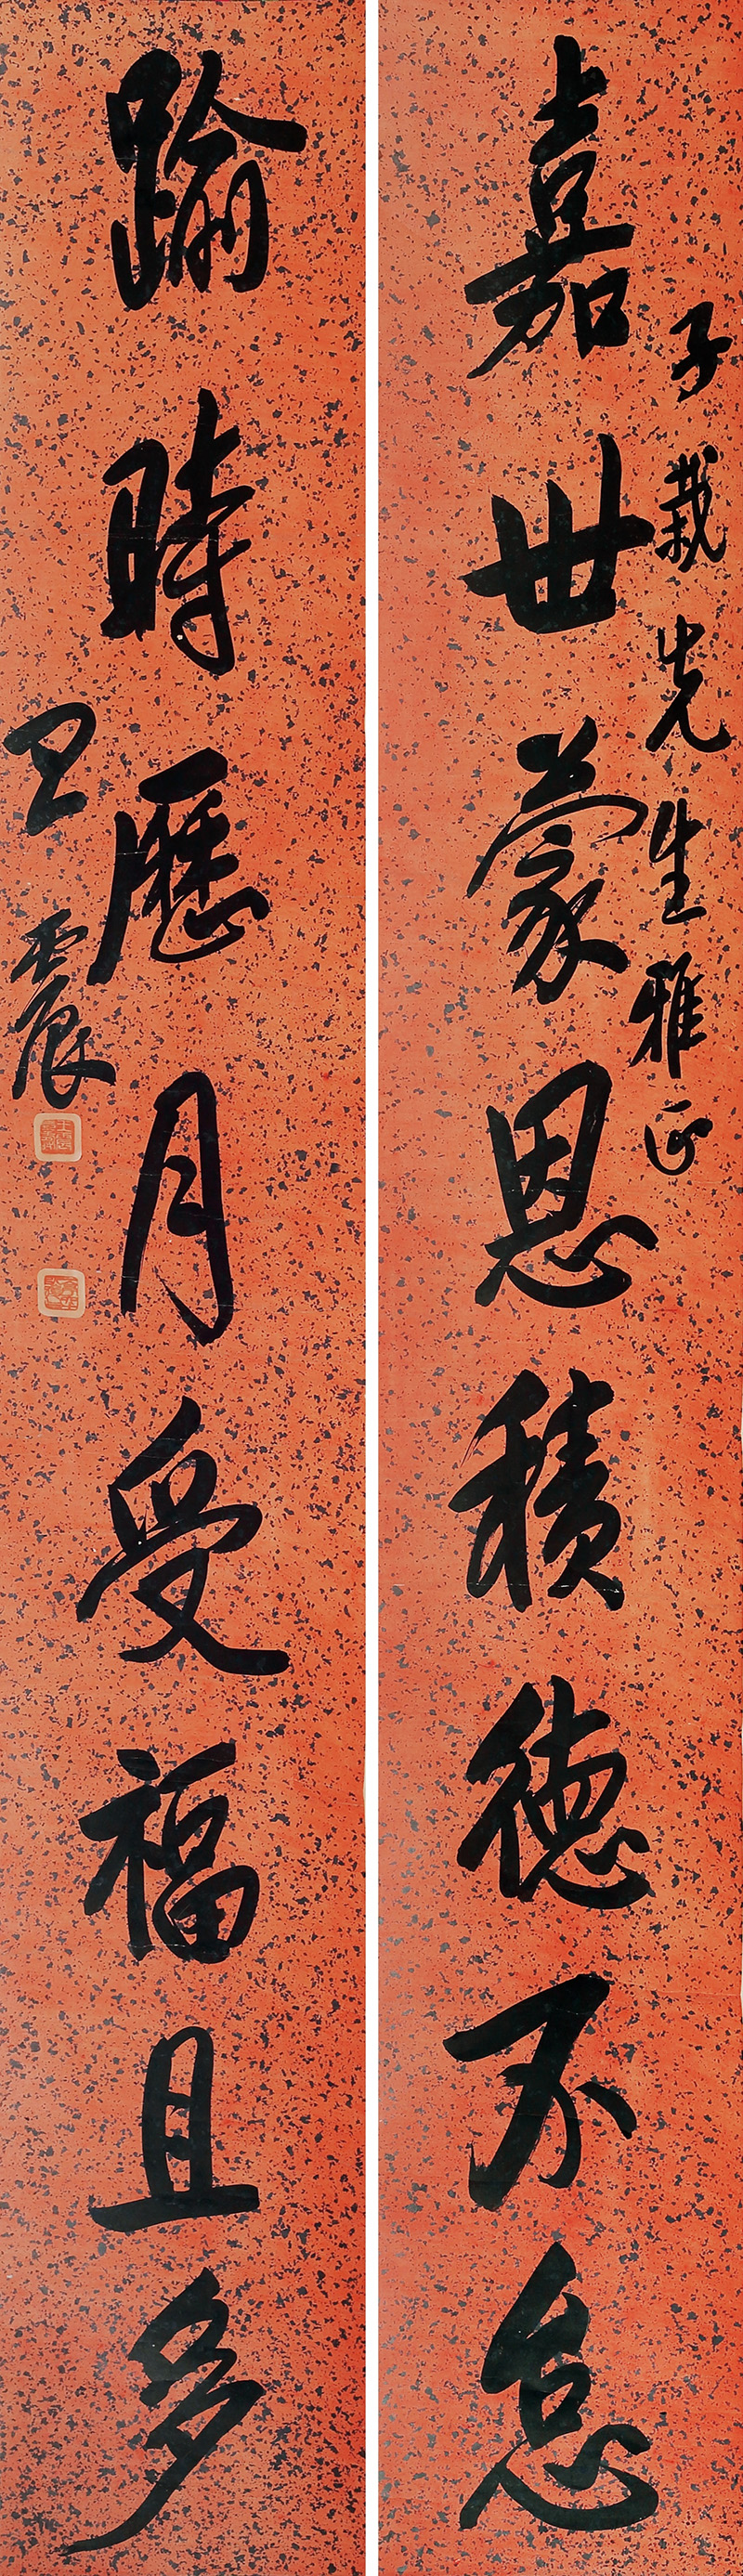 子栽先生雅正
嘉世蒙恩積德不怠
踰時歷月受福且多
王震